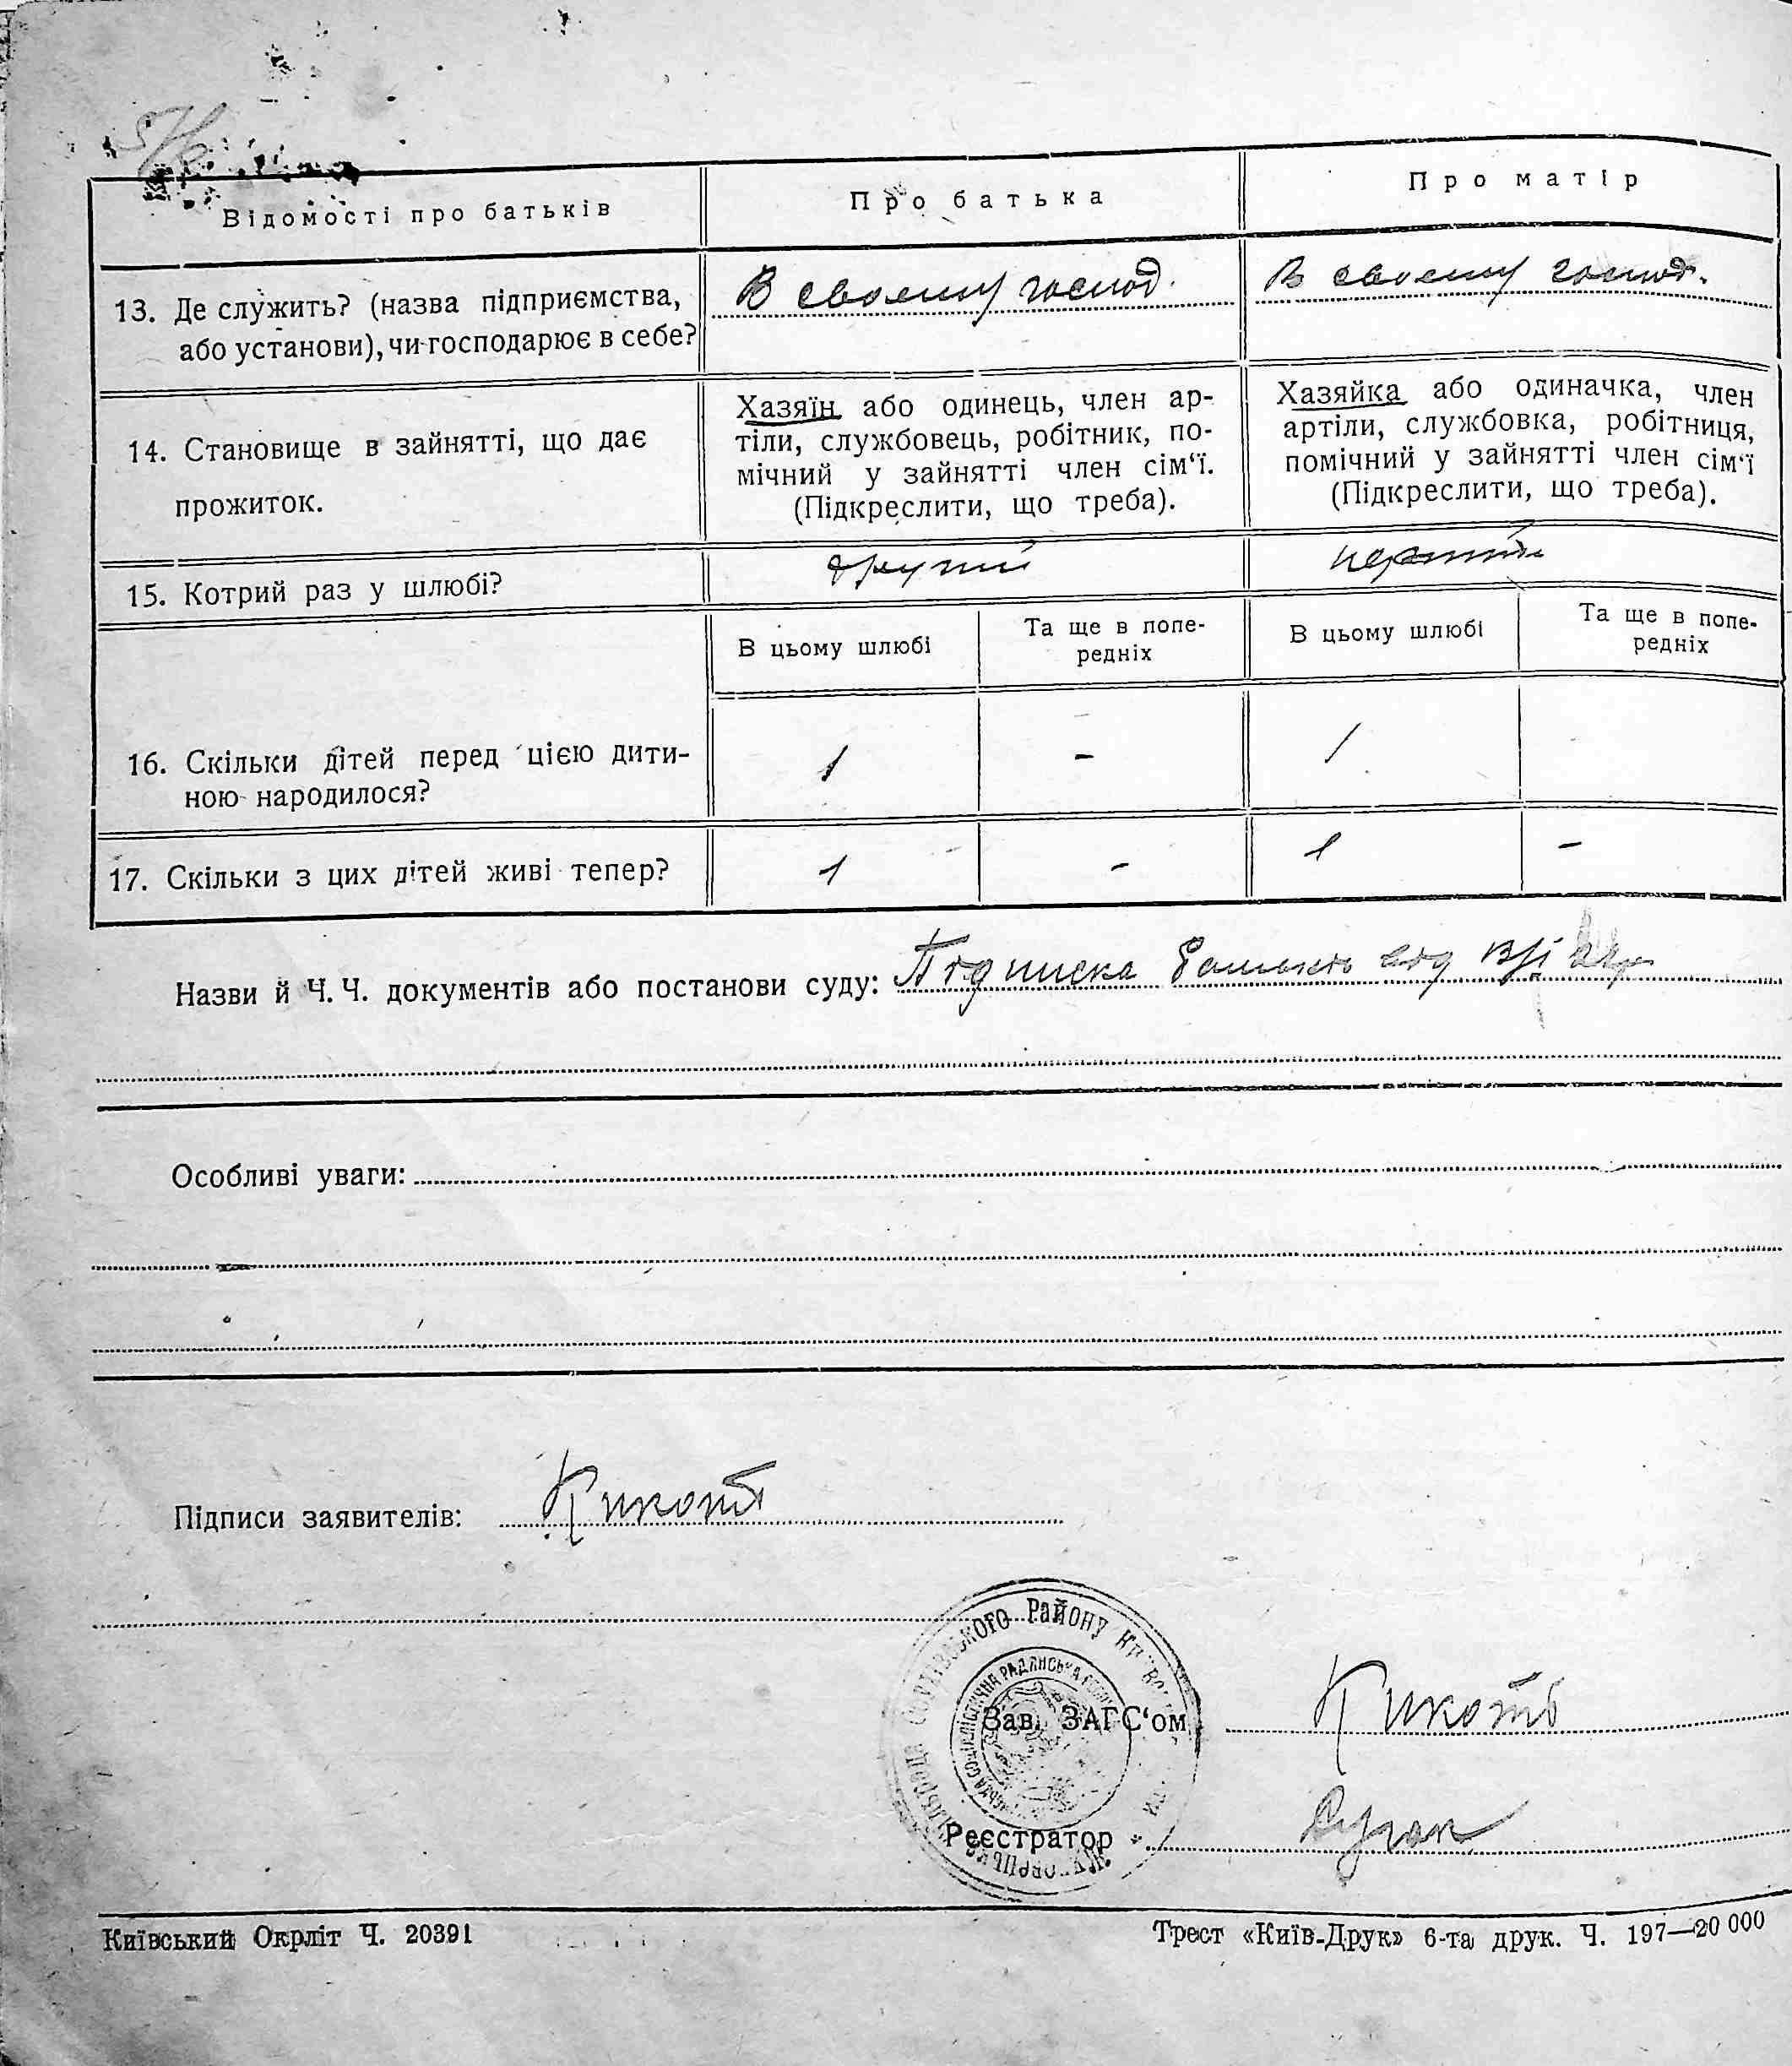 Відомості про батьків
Про батька
Про матір
13. Де служить? (назва підприємства,
або установи), чи господарює в себе?
В своєму господ.
В своєму господ.
14. Становище в зайнятті, що дає
прожиток.
Хазяїн або одинець, член ар-
тіли, службовець, робітник, по-
мічний у зайнятті член сім‘ї.
(Підкреслити, що треба).
Хазяйка або одиначка, член
артіли, службовка, робітниця,
помічний у зайнятті член сім‘ї
(Підкреслити, що треба).
15. Котрий раз у шлюбі?
другий
перший
В цьому шлюбі
Та ще в попе-
редніх
В цьому шлюбі
Та ще в попе-
редніх
16. Скільки дітей перед цією дити-
ною народилося?
1 - 1
17. Скільки з цих дітей живі тепер?
1 - 1 -
Назви й Ч. Ч. документів або постанови суду: Підписка
Особливі уваги:
Підписи заявителів: Кикоть
Району
РАДЯНСЬКА
Зав. ЗАГС‘ом Кикоть
Реєстратор
Київський Окрліт Ч. 20391
Трест «Київ-Друк» 6-та друк. Ч. 197—20 000